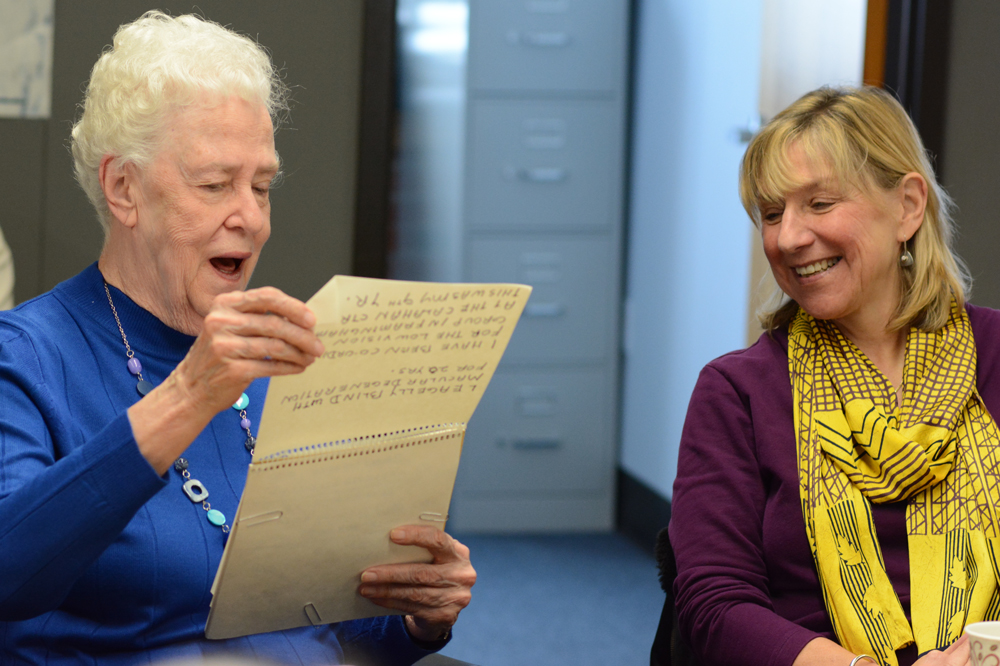 LEAGELLY BLIND WITH
MACULAR DEGENERATION
FOR 20 YRS.
I HAVE BEAN CO-ORDI
FOR THE LOW VISION
GROUP IN FRAMINGHAM
AT THE CALAHAN CTR
THIS WAS MY 9TH YR.